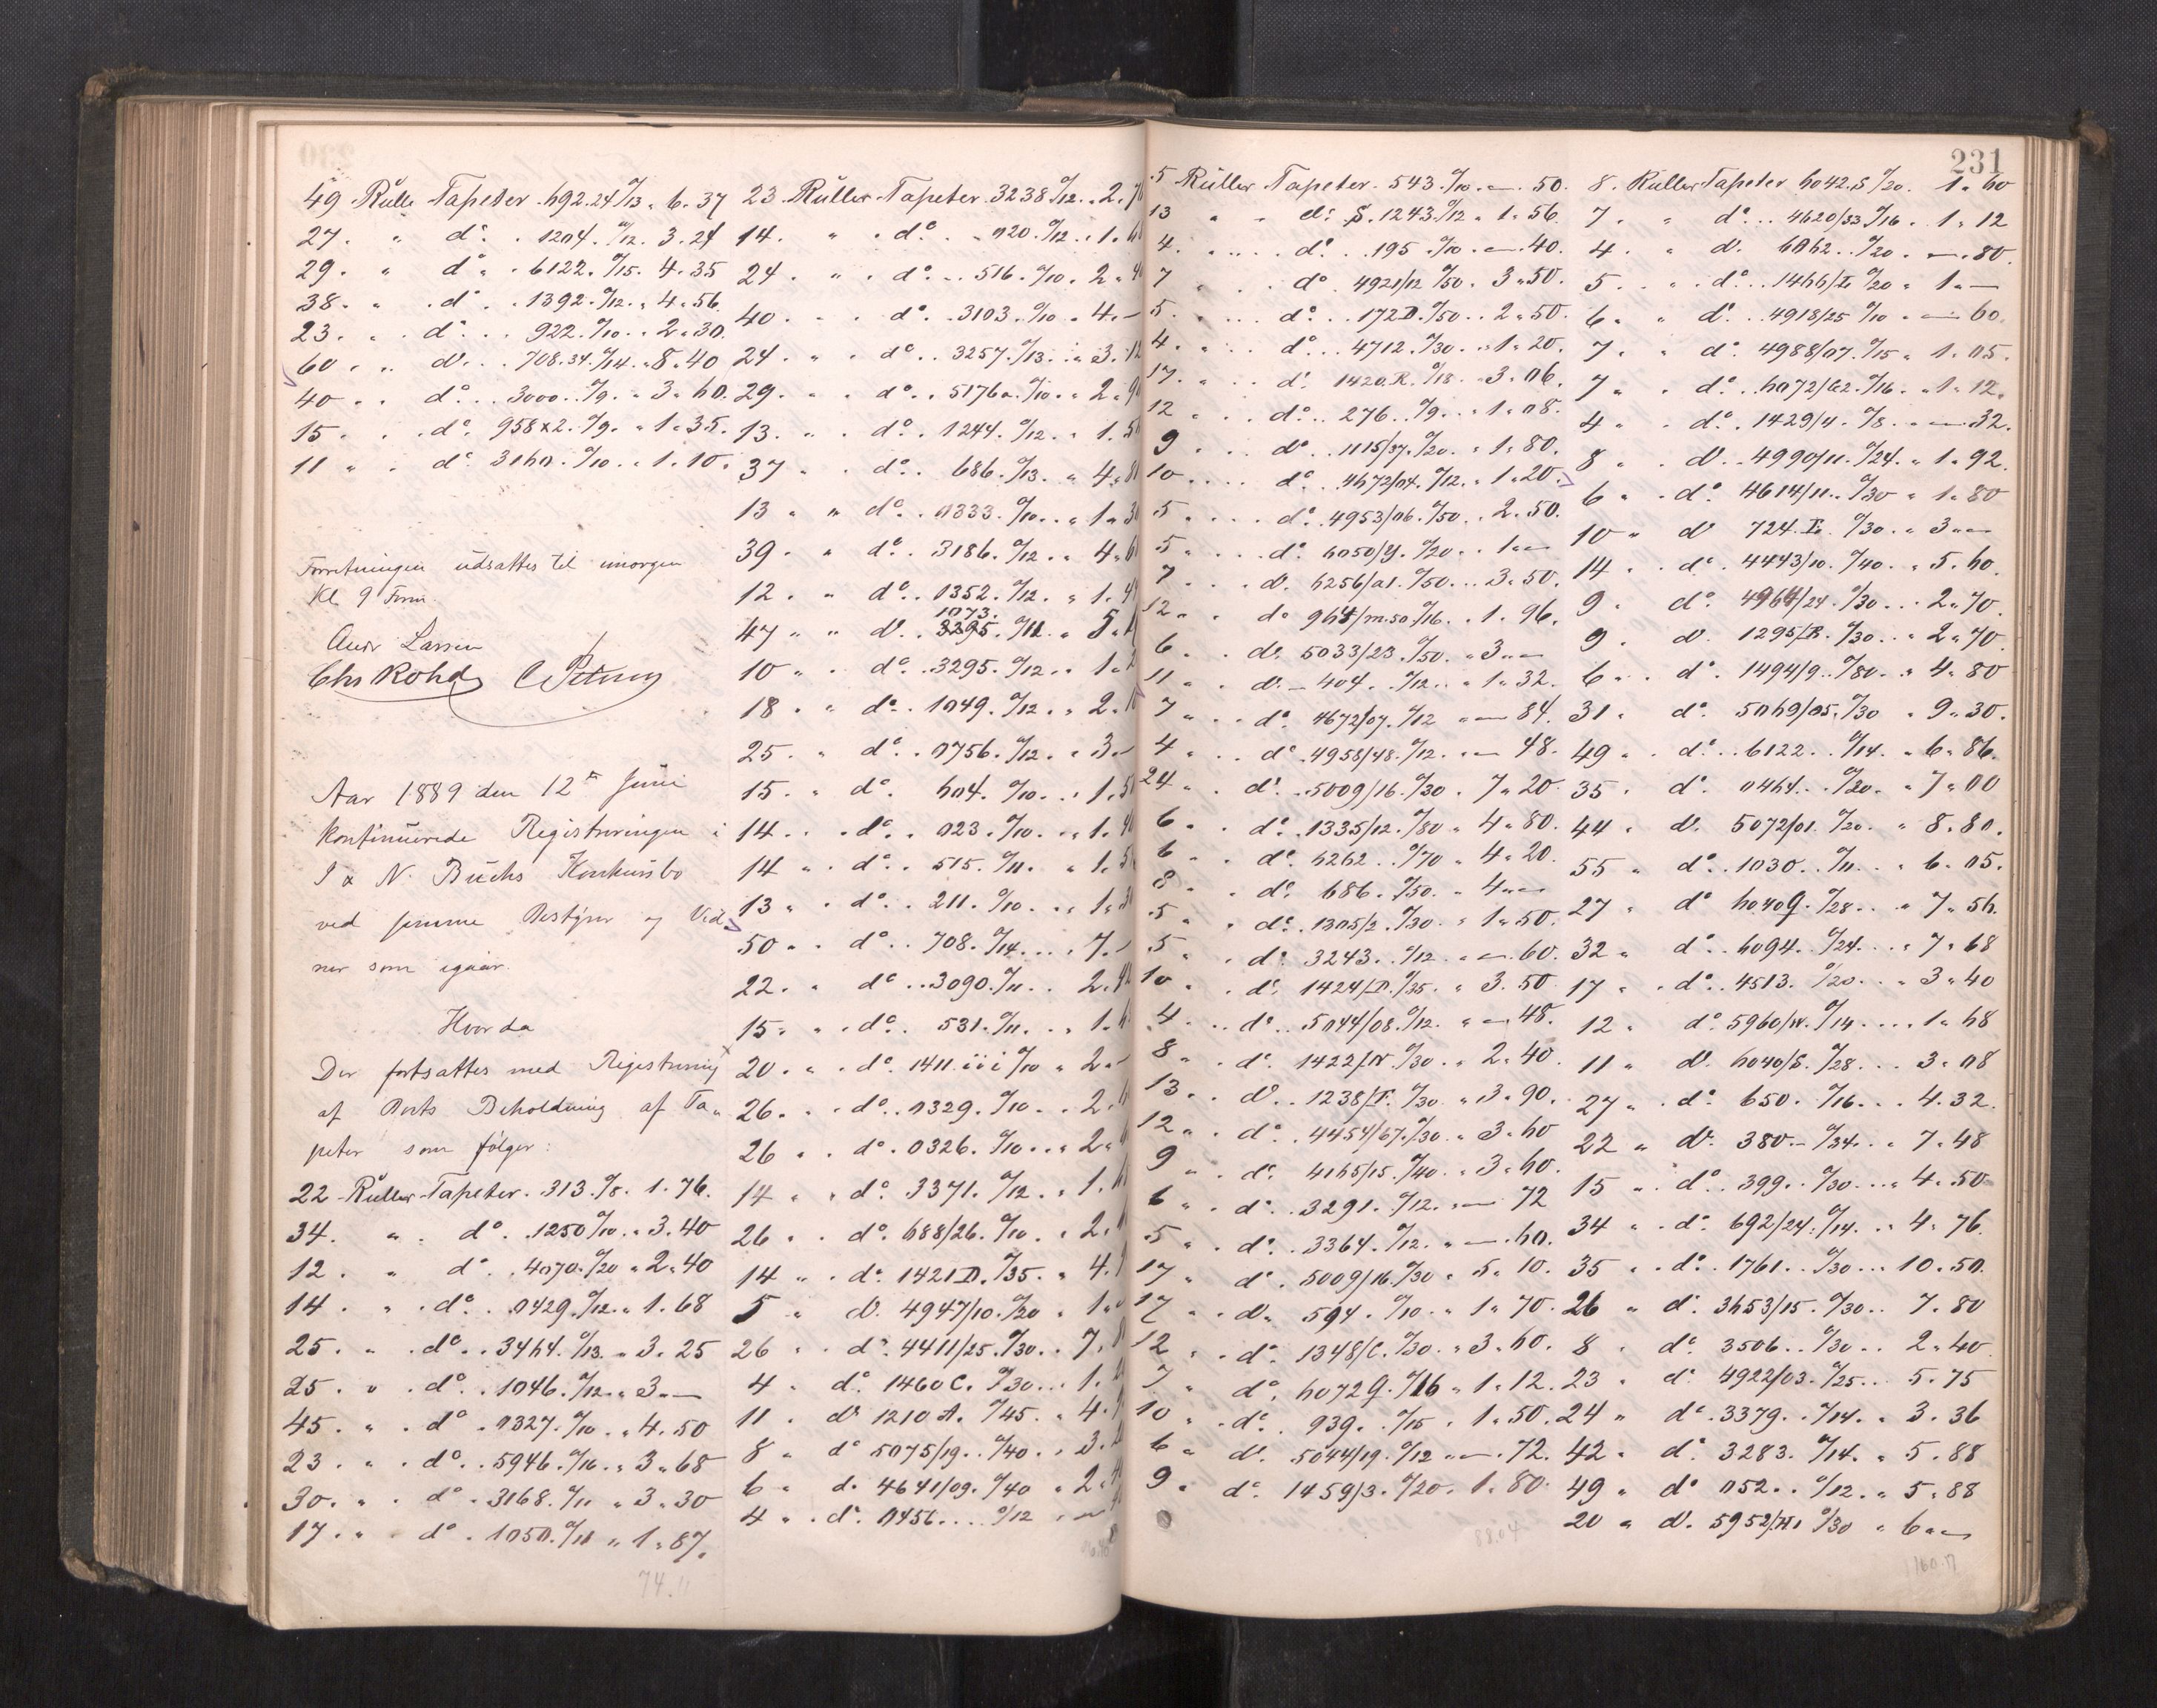 231
49 Rulle Tapeter 692.24 %13 " 6. 37
27. " do. 1204. %12. 3. 24
29. " do. 6122. %15. 4. 35
38. " do. 1392. %12. " 4. 56.
23. " do. 922. %10. " 2. 30.
60 " do. 708.34. %14. " 8. 40
40 " do. 3000. %9. " 3. 60.
15. " do. 958x2. %9. " 1. 35.
11 " do. 3160. %10. " 1. 10.
Forretningen udsattes til imorgen
Kl. 9 Form.
Andr Larsen
Chs Rohde
Aar 1889 den 12te Juni
kontinuerede Registreringen i
I & N. Buchs Konkursbo
ved samme Bestyrer og Vid-
ner som igaar.
Hvor da
Der fortsattes med Registrering
af Boets Beholdning af Ta-
peter som følger:
22 Ruller Tapeter. 313. %8. 1. 76.
34. " do. 1250 %10. " 3. 40
12. " do. 4070. %20 " 2. 40
14. " do. 0429. %12. " 1. 68
25. " do. 3464. %13. " 3. 25
25. " do. 1046. %12. " 3. —
45. " do. 0327. %10. " 4. 50
23. " do. 5946. %16. " 3. 68
30. " do. 3168. %11 " 3. 30
17. " do. 1050. %11 " 1. 87.
74.11
23 Ruller Tapeter. 3238 %12. " 2.
14. " do. 020. %12. " 1.
24. " do. 516. %10. " 2.
40. " do. 3103. %10 " 4. —
24. " do. 3257. %13. " 3. 12
29. " do. 5176a. %10. " 2. 9
13. " do. 1244. %12. " 1. 5
37 " do. 686. %13. " 4. 8
13 " do. 0333. %10. " 1. 3
39. " do. 3186. %12. " 4. 6
12. " do. 1352. %12. " 1. 4
1073.
47 " do. 3295. %11. " 5.
10 " do. 3295. %12. " 1. 2
18. " do. 1049. %12. " 2. 1
25. " do. 0756. %12. " 3. —
15. " do. 604. %10. " 1. 5
14. " do. 023. %10. " 1. 4
14 " do. 515. %11. " 1. 5
13 " do. 211. %10. " 1. 3
50 " do. 708. %14. " 7. —
22. " do. 3090. %11. 2. 4
15. " do. 531. %11. " 1. 6
20. " do. 1411. iii %10 " 2. —
26. " do. 0329. %10. 2. 6
26 " do. 0326. %10. " 2. 6
14 " do. 3371. %12. " 1. 6
26 " do. 688/26. %10. " 2. 6
14 " do. 1421D. %35. " 4. 9
5 " do. 4947/10. %20 " 1.
26 " do. 4411/25. %30. 7. 8
4 " do. 1460C. %30. 1. 2
11. do. 1210 A. %45. " 4. 9
8 " do. 5075/19. %40. " 3. 2
6 " do. 4641/09. %40 " 2. 4
4 " do. 0456. %12 " —
5 Ruller Tapeter. 543. %10. — 50.
13 " do. S. 1243. %12 " 1. 56.
4. " do. 195. %10. — 40.
7 " do. 4921/12 %50. 3. 50.
5. " do. 172D. %50. 2. 50.
4. " do. 4712. %30. " 1. 20.
17. " do. 1420.R. %18. 3. 06.
12 " do. 276. %9. " 1. 08.
9 " do. 1115/37. %20. " 1. 80.
10 " do. 4672/04. %12. " 1. 20.
5 " do. 4953/06. %50. 2. 50.
5 " do. 6050/Y. %20. 1. —
7 " do. 6256/a1. %50. 3. 50.
12 " do. 964/m.50 %16. 1. 96.
6 " do. 5033/23. %50. " 3. —
11 " do. — 404. %12. " 1. 32.
7 " do. 4672/07. %12 " — 84.
4 " do. 4958/48. %12. — 48.
24 " do. 5009/16. %30. 7. 20.
6 " do. 1335/12. %80 " 4. 80.
6 " do. 6262. %70 " 4. 20.
8 " do. 686. %50. " 4. —
5 " do. 1305/2. %30. " 1. 50.
5 " do. 3243. %12. — 60.
10 " do. 1424/D. %35. " 3. 50
4 " do. 5044/08. %12. " — 48.
8 " do. 1422/N. %30. " 2. 40.
13 " do. 1238/F. %30. " 3. 90.
12 " do. 4454/67. %30. " 3. 60
9 " do. 4165/15. %40. " 3. 60.
6 " do. 3291. %12. " — 72
5 " do. 3364. %12. " — 60.
17 " do. 5009/16. %30 " 5. 10.
17 " do. 594. %10. " 1. 70.
12 " do. 1348/C. %30. " 3. 60.
7 " do. 6072 Q. %16 " 1. 12.
10 " do. 939. %15. 1. 50.
6 " do. 5044/19. %12 " — 72.
9 " do. 1459/3. %20. 1. 80.
88.04
8. Ruller Tapeter 6042.S %20. 1. 60
7. " do. 4620/33 %16. 1. 12
4. " do. 6062. %20. — 80.
5 " do. 1466/I. %20 " 1. —
6 " do. 4918/25 %10 — 60.
7. " do. 4988/07. %15 " 1. 05.
7 " do. 6072/62. %16. " 1. 12.
4 " do. 1429/4. %8. — 32.
8 " do. 4990/11. %24. " 1. 92.
6 " do. 4614/11. %30 " 1. 80
10 " do. 724.E. %30. " 3. —
14 " do. 4443/10. %40. " 5. 60.
9 " do. 4964/24. %30. 2. 70.
9 " do. 1295/R. %30. " 2. 70.
6 " do. 1494/9. %80. " 4. 80
31 " do. 5069/05. %30 " 9. 30.
49 " do. 6122. %14. " 6. 86.
35 " do. 0464. %20. " 7. 00
44 " do. 5072/01. %20. " 8. 80.
55 " do. 1030. %11. " 6. 05.
27 " do. 6040Q. %28. " 7. 56.
32 " do. 6094. %24. " 7. 68
17 " do. 4513. %20. " 3. 40
12 " do. 5960/N. %14. 1. 68
11 " do. 6040/S. %28. 3. 08
27 " do. 650. %16. 4. 32.
22 " do. 380. — %34. " 7. 48
15 " do. 399. %30. " 4. 50
34 " do. 692/24. %14. " 4. 76.
35 " do. 1761. %30. 10. 50.
26 " do. 3653/15. %30. 7. 80
8 " do. 3506. %30. 2. 40
23 " do. 4922/03. %25. 5. 75
24 " do. 3379. %14. " 3. 36
42 " do. 3283. %14. " 5. 88
49 " do. 052. %12. " 5. 88
20 " do. 5952/H. %30 " 6. —